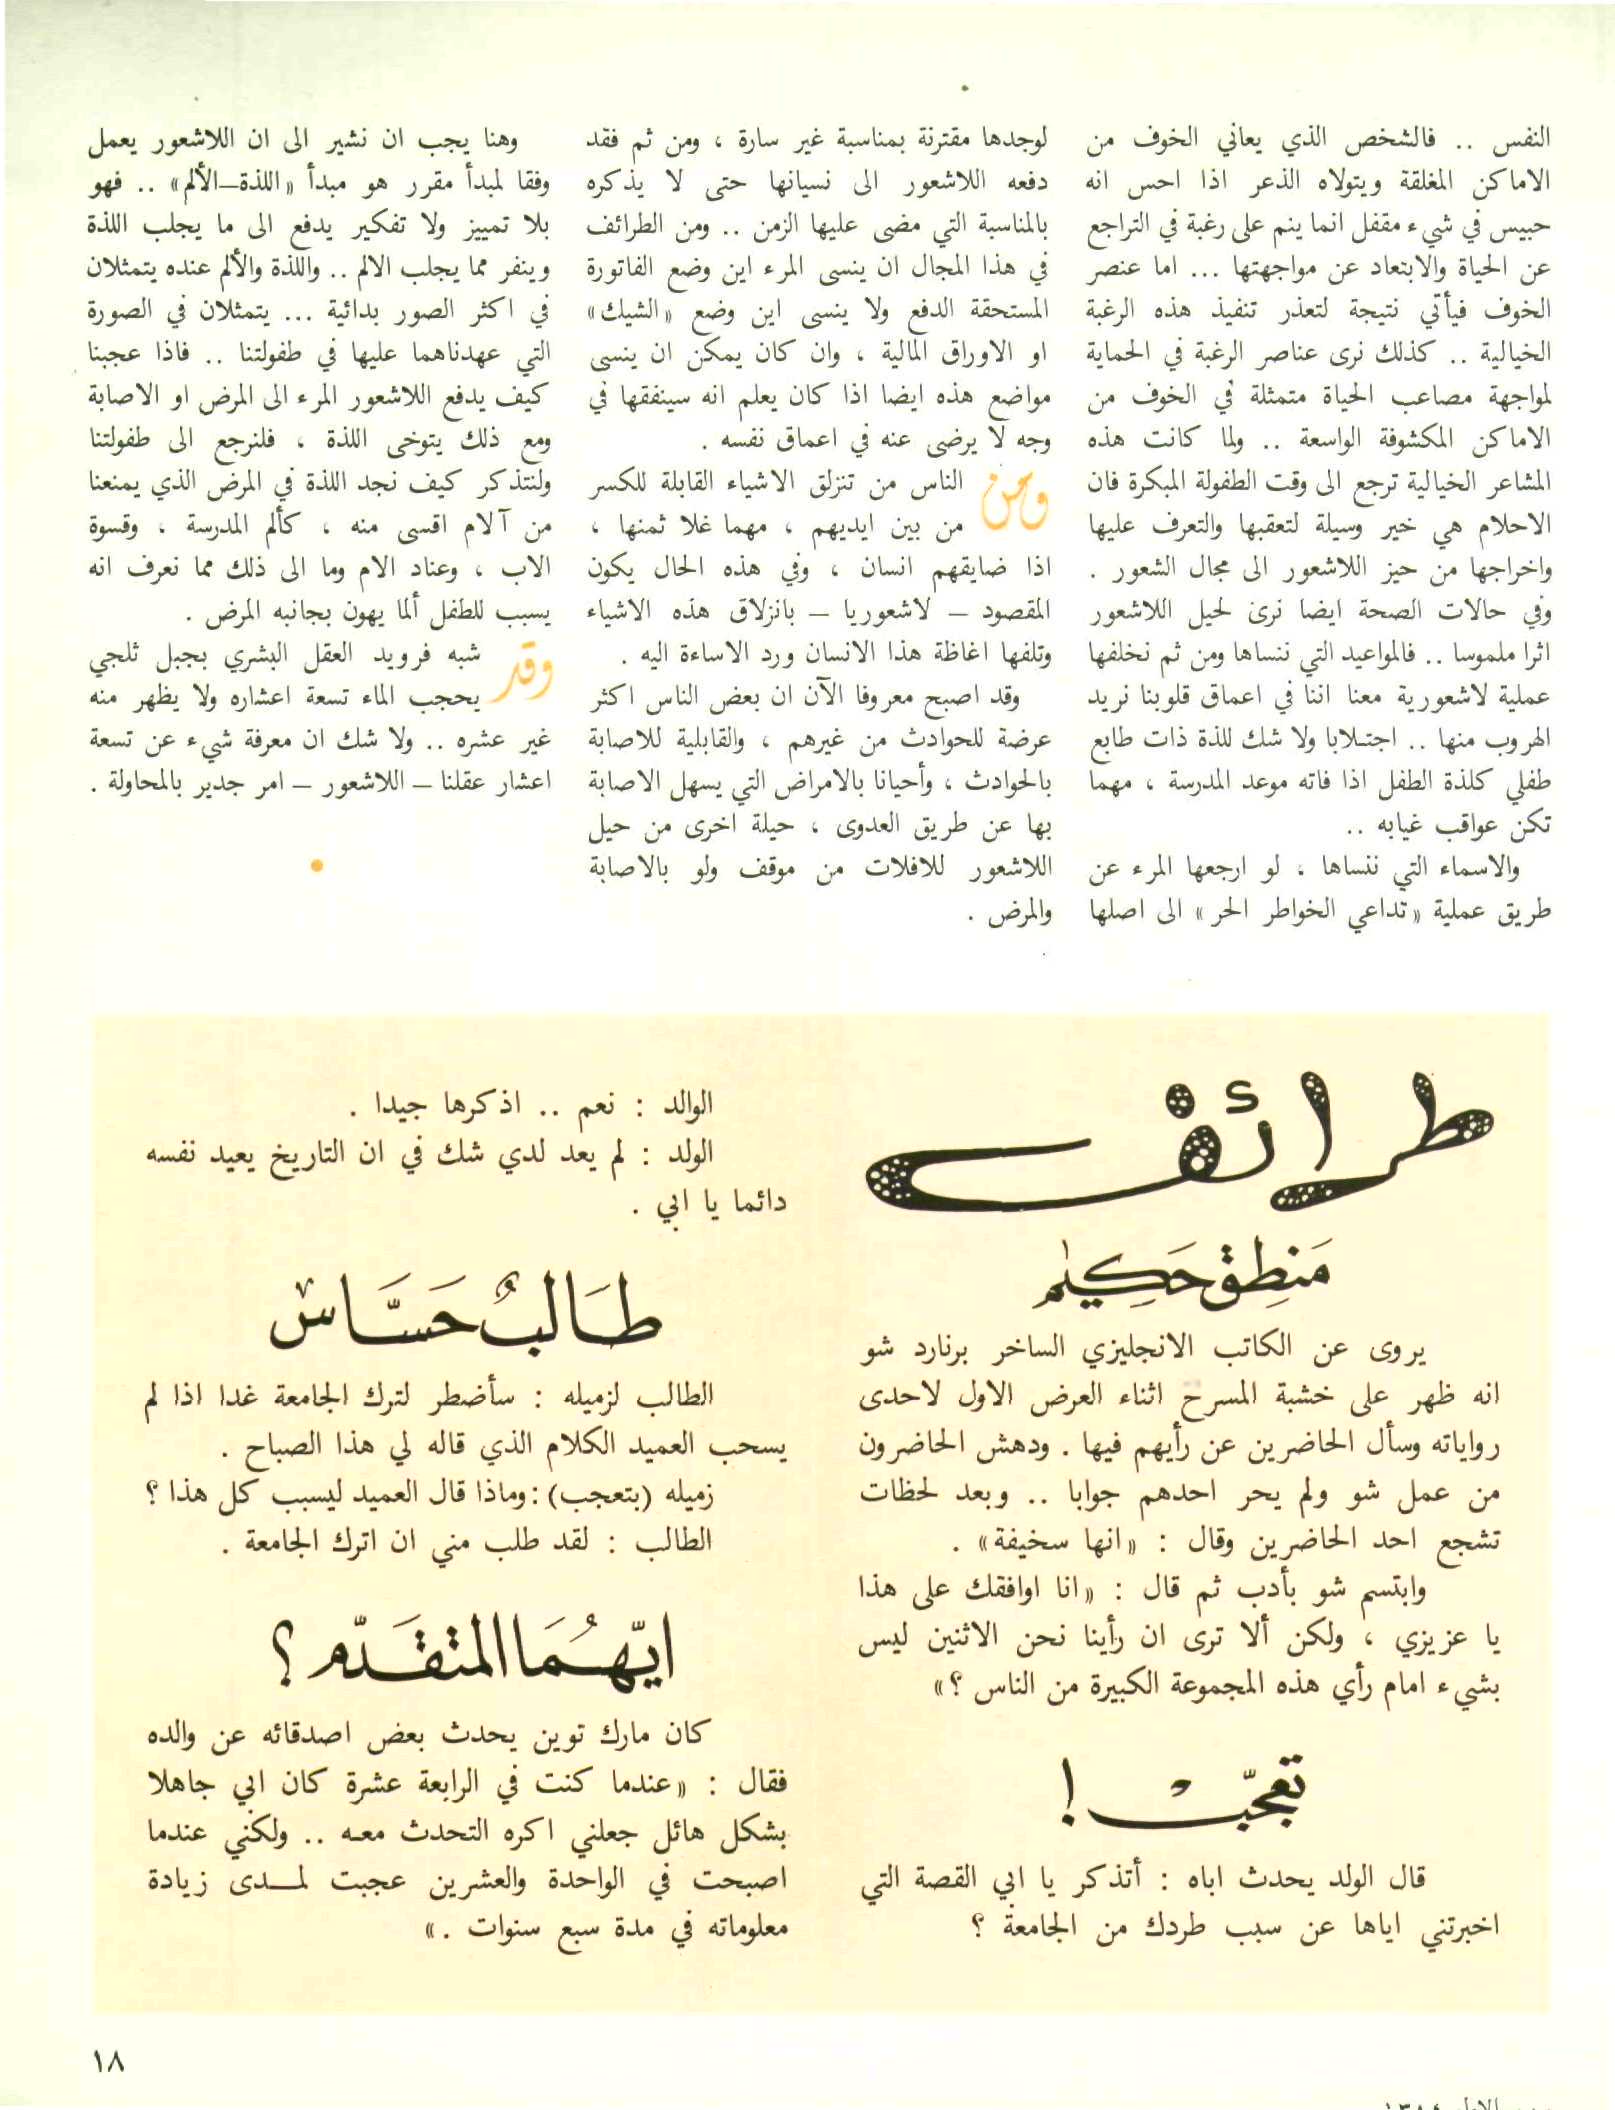 النفس .. فالشخص الذي يعاني الخوف من
الاماكن المغلقة ويتولاه الذعر اذا احس انه
حبيس في شيء مقفل انما ينم على رغبة في التراجع
عن الحياة والابتعاد عن مواجهتها ... اما عنصر
الخوف فيأتي نتيجة لتعذر تنفيذ هذه الرغبة
الخيالية .. كذلك نرى عناصر الرغبة في الحماية
لمواجهة مصاعب الحياة متمثلة في الخوف من
الاماكن المكشوفة الواسعة .. ولما كانت هذه
المشاعر الخيالية ترجع الى وقت الطفولة المبكرة فان
الاحلام هي خير وسيلة لتعقبها والتعرف عليها
واخراجها من حيز اللاشعور الى مجال الشعور .
وفي حالات الصحة ايضا نرى لحيل اللاشعور
اثرا ملموسا .. فالمواعيد التي ننساها ومن ثم نخلفها
عملية لاشعورية معنا اننا في اعماق قلوبنا نريد
الهروب منها .. اجتلابا ولا شك للذة ذات طابع
طفلي كلذة الطفل اذا فاته موعد المدرسة ، مهما
تكن عواقب غيابه ..
والاسماء التي ننساها ، لو ارجعها المرء عن
طريق عملية «تداعي الخواطر الحر» الى اصلها
لوجدها مقترنة بمناسبة غير سارة ، ومن ثم فقد
دفعه اللاشعور الى نسيانها حتى لا يذكره
بالمناسبة التي مضى عليها الزمن .. ومن الطرائف
في هذا المجال ان ينسى المرء اين وضع الفاتورة
المستحقة الدفع ولا ينسى اين وضع «الشيك»
او الاوراق المالية ، وان كان يمكن ان ينسى
مواضع هذه ايضا اذا كان يعلم انه سينفقها في
وجه لا يرضى عنه في اعماق نفسه .
ومن الناس من تنزلق الاشياء القابلة للكسر
من بين ايديهم ، مهما غلا ثمنها ،
اذا ضايقهم انسان ، وفي هذه الحال يكون
المقصود – لاشعوريا – بانزلاق هذه الاشياء
وتلفها اغاظة هذا الانسان ورد الاساءة اليه .
وقد اصبح معروفا الآن ان بعض الناس اكثر
عرضة للحوادث من غيرهم ، والقابلية للاصابة
بالحوادث ، وأحيانا بالامراض التي يسهل الاصابة
بها عن طريق العدوى ، حيلة اخرى من حيل
اللاشعور للافلات من موقف ولو بالاصابة
والمرض .
وهنا يجب ان نشير الى ان اللاشعور يعمل
وفقا لمبدأ مقرر هو مبدأ «اللذة–الألم» .. فهو
بلا تمييز ولا تفكير يدفع الى ما يجلب اللذة
وينفر مما يجلب الالم .. واللذة والألم عنده يتمثلان
في اكثر الصور بدائية ... يتمثلان في الصورة
التي عهدناهما عليها في طفولتنا .. فاذا عجبنا
كيف يدفع اللاشعور المرء الى المرض او الاصابة
ومع ذلك يتوخى اللذة ، فلنرجع الى طفولتنا
ولنتذكر كيف نجد اللذة في المرض الذي يمنعنا
من آلام اقسى منه ، كألم المدرسة ، وقسوة
الاب ، وعناد الام وما الى ذلك مما نعرف انه
يسبب للطفل ألما يهون بجانبه المرض .
وقد شبه فرويد العقل البشري بجبل ثلجي
يحجب الماء تسعة اعشاره ولا يظهر منه
غير عشره .. ولا شك ان معرفة شيء عن تسعة
اعشار عقلنا – اللاشعور – امر جدير بالمحاولة .
طرائف
مَنطِق حَكيم
يروى عن الكاتب الانجليزي الساخر برنارد شو
انه ظهر على خشبة المسرح اثناء العرض الاول لاحدى
رواياته وسأل الحاضرين عن رأيهم فيها . ودهش الحاضرون
من عمل شو ولم يحر احدهم جوابا .. وبعد لحظات
تشجع احد الحاضرين وقال : «انها سخيفة» .
وابتسم شو بأدب ثم قال : «انا اوافقك على هذا
يا عزيزي ، ولكن ألا ترى ان رأينا نحن الاثنين ليس
بشيء امام رأي هذه المجموعة الكبيرة من الناس ؟»
تعجّب !
قال الولد يحدث اباه : أتذكر يا ابي القصة التي
اخبرتني اياها عن سبب طردك من الجامعة ؟
الوالد : نعم .. اذكرها جيدا .
الولد : لم يعد لدي شك في ان التاريخ يعيد نفسه
دائما يا ابي .
طَالبٌ حَسَّاسْ
الطالب لزميله : سأضطر لترك الجامعة غدا اذا لم
يسحب العميد الكلام الذي قاله لي هذا الصباح .
زميله (بتعجب) : وماذا قال العميد ليسبب كل هذا ؟
الطالب : لقد طلب مني ان اترك الجامعة .
ايّهُمَا المتقَدّم ؟
كان مارك توين يحدث بعض اصدقائه عن والده
فقال : «عندما كنت في الرابعة عشرة كان ابي جاهلا
بشكل هائل جعلني اكره التحدث معه .. ولكني عندما
اصبحت في الواحدة والعشرين عجبت لمدى زيادة
معلوماته في مدة سبع سنوات .»
١٨